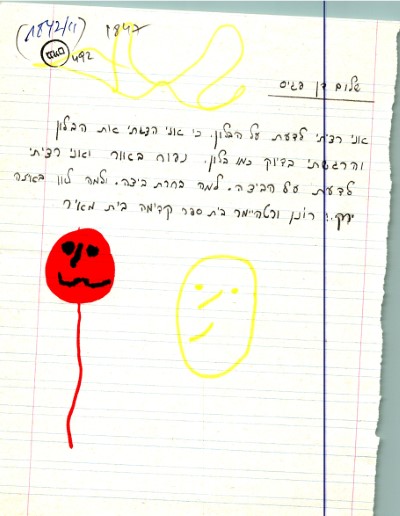 (1842/11) 1847
492
שלום דן פגיס
אני רציתי לדעת על הבלון. כי אני הצגתי את הבלון
והרגשתי בדיוק כמו בלון. נפוח באוור ואני רציתי
לדעת על הביצה. למה בחרת ביצה. ולמה
רונן ורטהיימר בית ספר קדימה בית מאיר